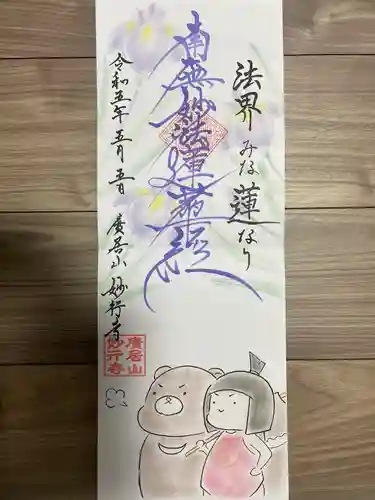 法界みな蓮なり
南無妙法蓮華経
令和五年五月五日 廣居山 妙行寺
廣居山
妙行寺